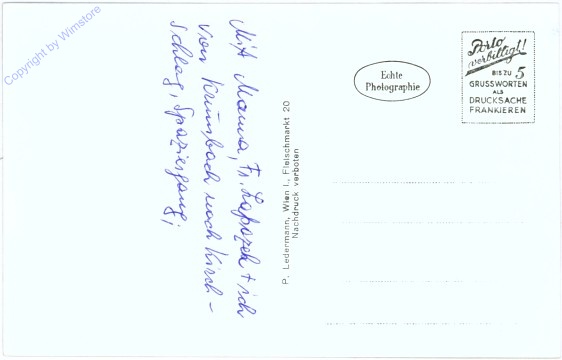 Copyright by Wimstore
Mit Mama, Fr. + ich
von Krumbach nach Kirch-
schlag, Spaziergang;
P. Ledermann, Wien I., Fleischmarkt 20
Nachdruck verboten
Echte
Photographie
Porto
verbilligt!
BIS ZU 5
GRUSSWORTEN
ALS
DRUCKSACHE
FRANKIEREN